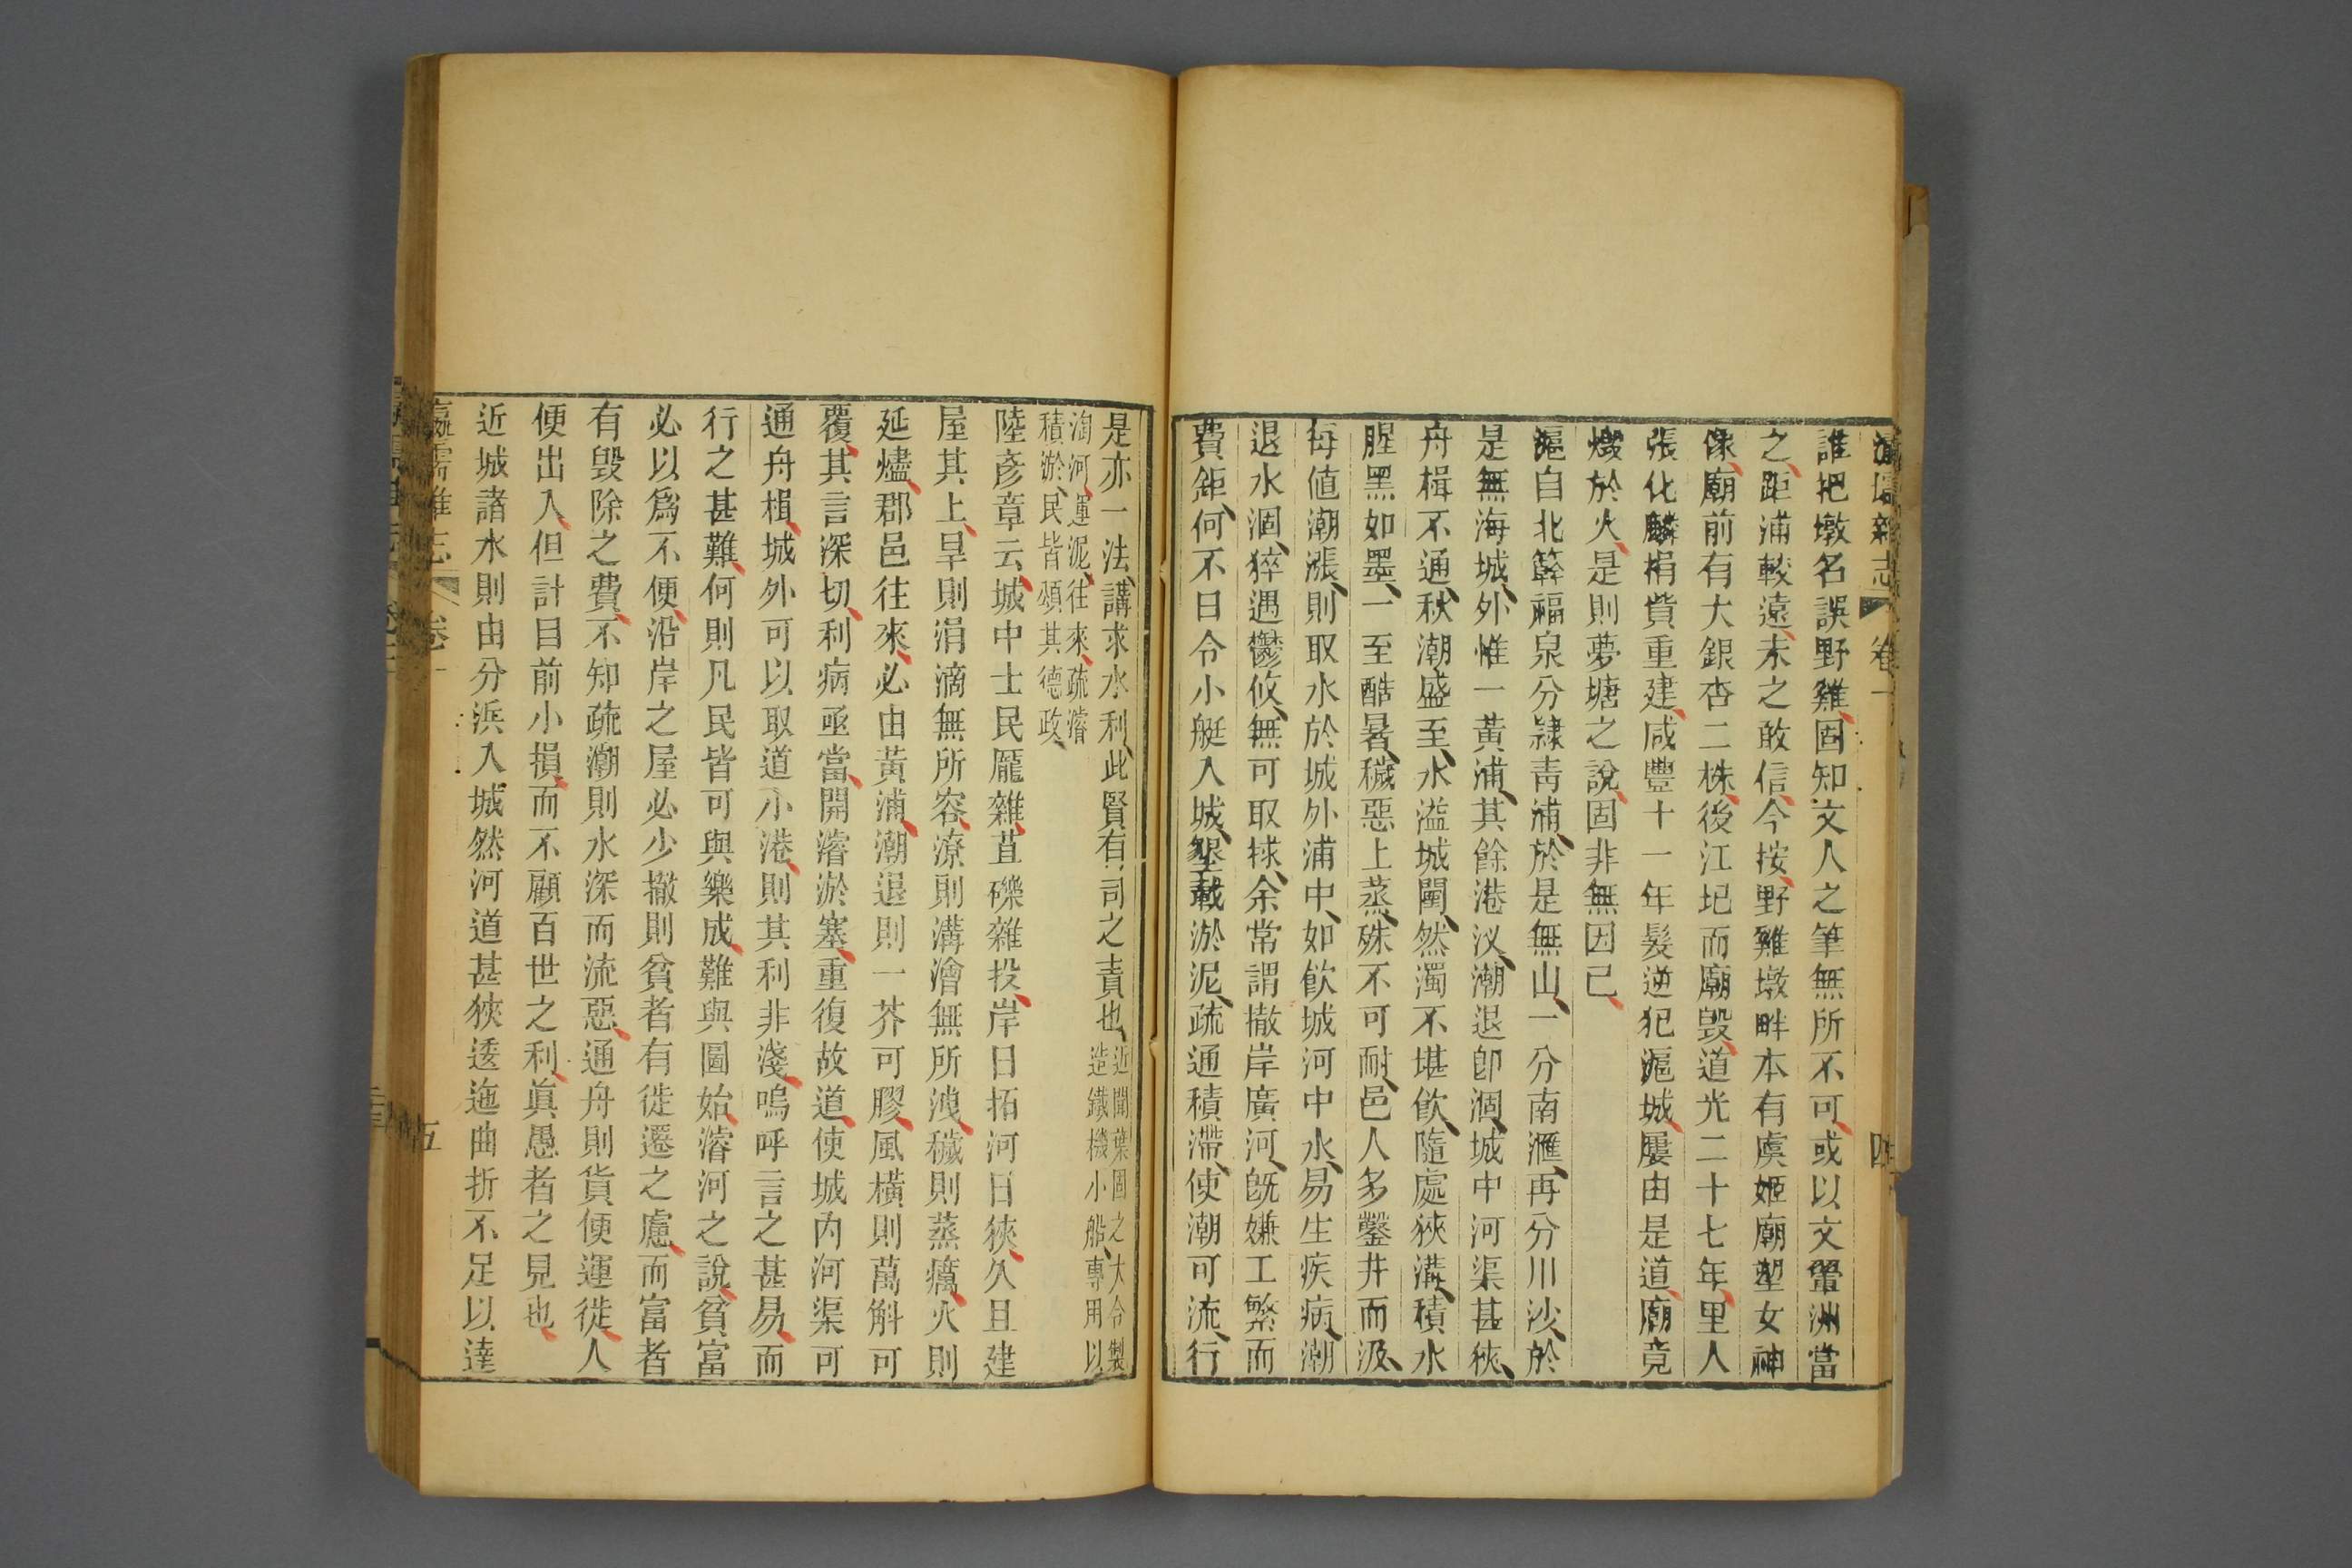 瀛壖雜志 卷一 四
誰把墩名誤野雞固知文人之筆無所不可或以文鸞洲當
之距浦較遠未之敢信今按野雞墩畔本有虞姬廟塑女神
像廟前有大銀杏二株後江圮而廟毀道光二十七年里人
張化麟捐貲重建咸豐十一年髮逆犯滬城屢由是道廟竟
燬於火是則夢塘之說固非無因已
滬自北簳福泉分隸青浦於是無山一分南滙再分川沙於
是無海城外惟一黃浦其餘港汊潮退卽涸城中河渠甚狹
舟楫不通秋潮盛至水溢城闉然濁不堪飲隨處狹溝積水
腥黑如墨一至酷暑穢惡上蒸殊不可耐邑人多鑿井而汲
每值潮漲則取水於城外浦中如飲城河中水易生疾病潮
退水涸猝遇鬱攸無可取捄余常謂撤岸廣河旣嫌工繁而
費鉅何不日令小艇入城墾載淤泥疏通積滯使潮可流行
是亦一法講求水利此賢有司之責也近聞葉固之大令製
造鐵機小船專用以
淘河運泥往來疏濬
積淤民皆頌其德政
陸彥章云城中士民厖雜苴礫雜投岸日拓河日狹久且建
屋其上旱則涓滴無所容潦則溝澮無所洩穢則蒸癘火則
延燼郡邑往來必由黃浦潮退則一芥可膠風橫則萬斛可
覆其言深切利病亟當開濬淤塞重復故道使城內河渠可
通舟楫城外可以取道小港則其利非淺嗚呼言之甚易而
行之甚難何則凡民皆可與樂成難與圖始濬河之說貧富
必以爲不便沿岸之屋必少撤則貧者有徙遷之慮而富者
有毀除之費不知疏潮則水深而流惡通舟則貨便運徙人
便出入但計目前小損而不顧百世之利眞愚者之見也
近城諸水則由分浜入城然河道甚狹逶迤曲折不足以達
瀛壖雜志 卷一 五